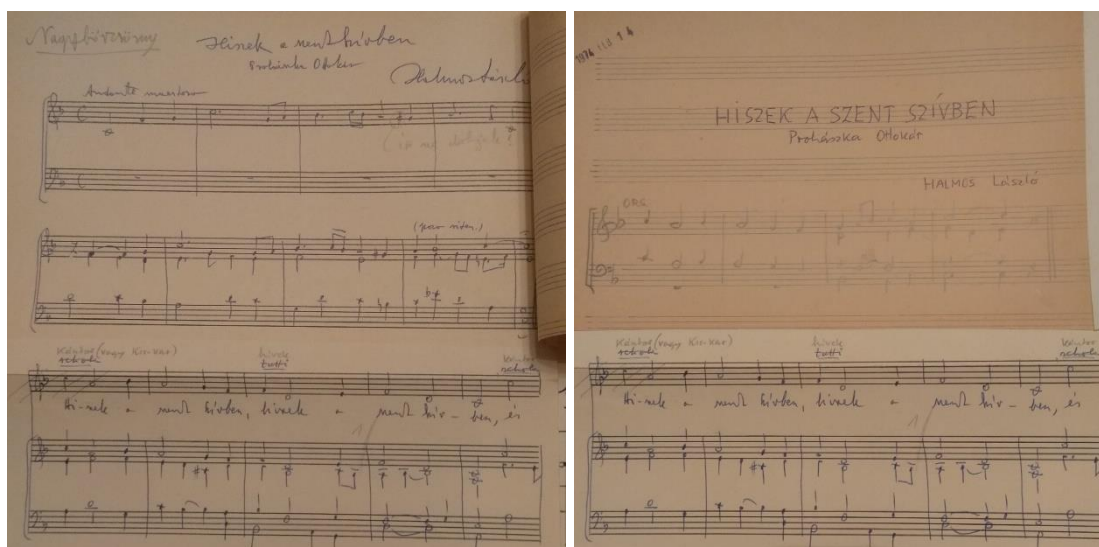 Nagybörzsöny
Hiszek a szent Szívben
Prohászka Ottokár
Halmos László
Andante maestoso
Kántor (vagy Kis-kar)
schola
hívek
tutti
kántor
schola
Hi-szek a szent Szívben, hiszek a szent Szív-ben, és
1974 III 14
HISZEK A SZENT SZÍVBEN
Prohászka Ottokár
HALMOS László
ORG.
Kántor (vagy Kis-kar)
schola
hívek
tutti
kántor
schola
Hi-szek a szent Szívben, hiszek a szent Szív-ben, és